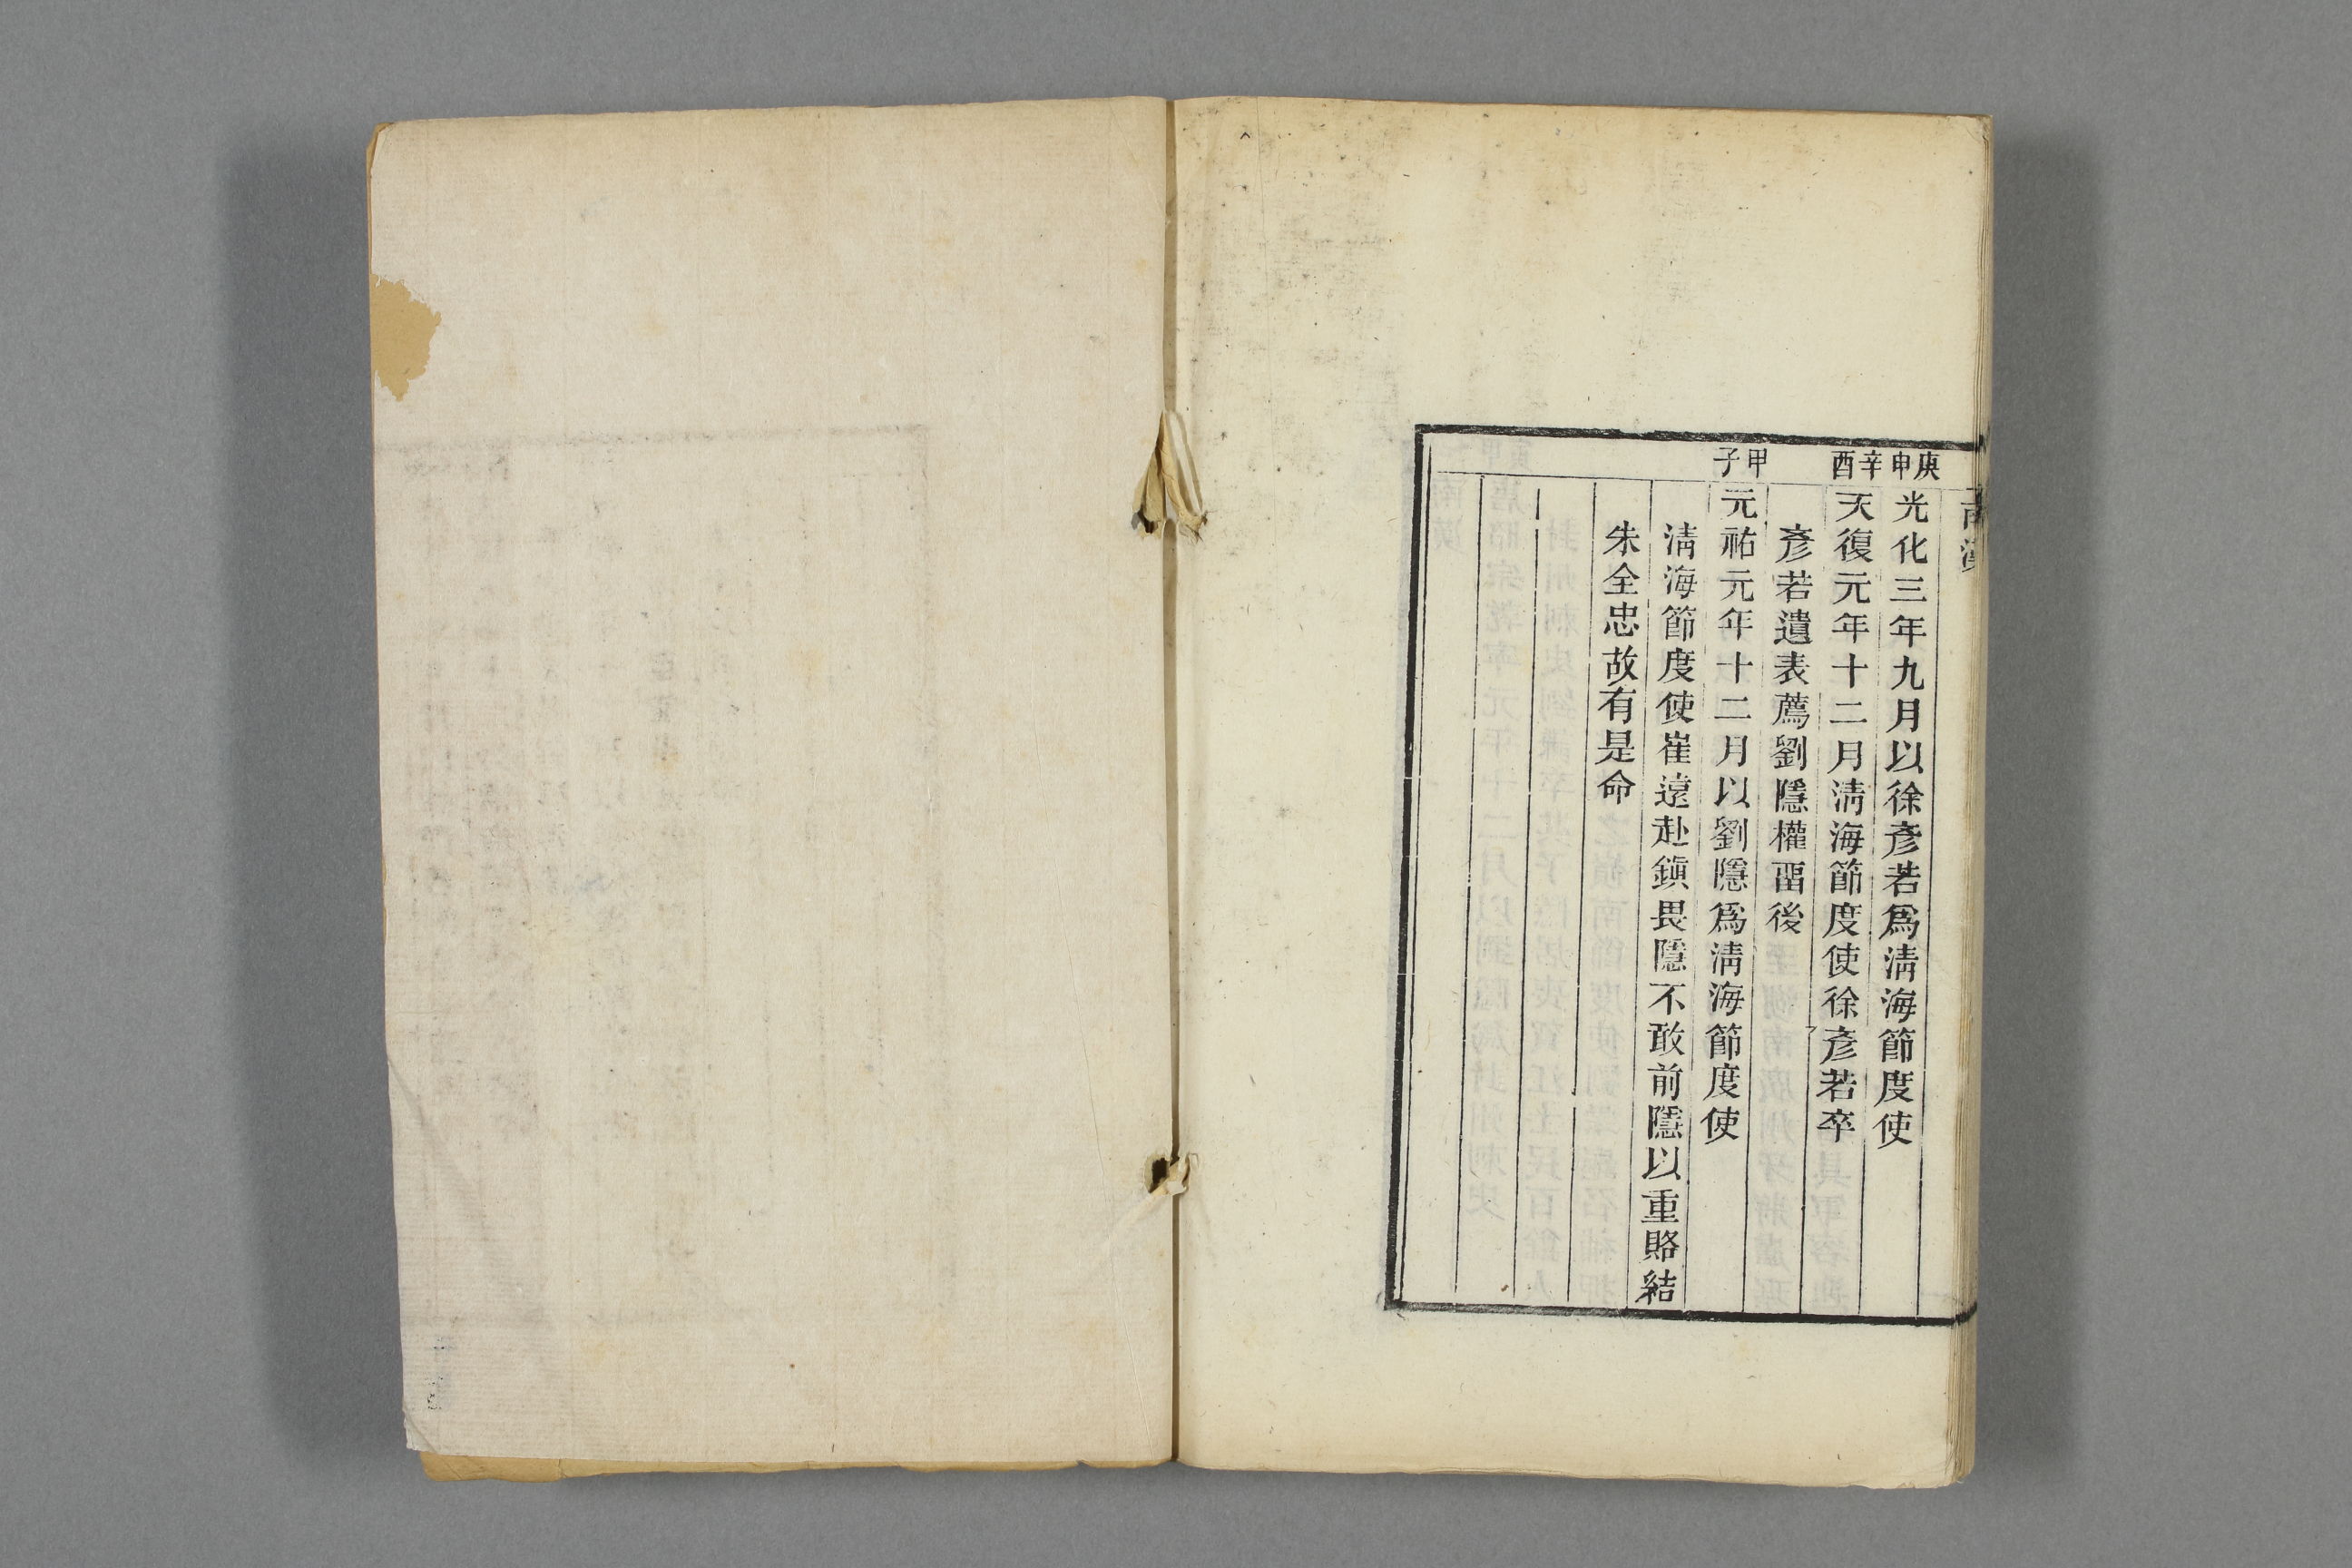 南漢
庚申
光化三年九月以徐彥若爲淸海節度使
辛酉
天復元年十二月淸海節度使徐彥若卒
彥若遺表薦劉隱權畱後
甲子
元祐元年十二月以劉隱爲淸海節度使
淸海節度使崔遠赴鎭畏隱不敢前隱以重賂結
朱全忠故有是命